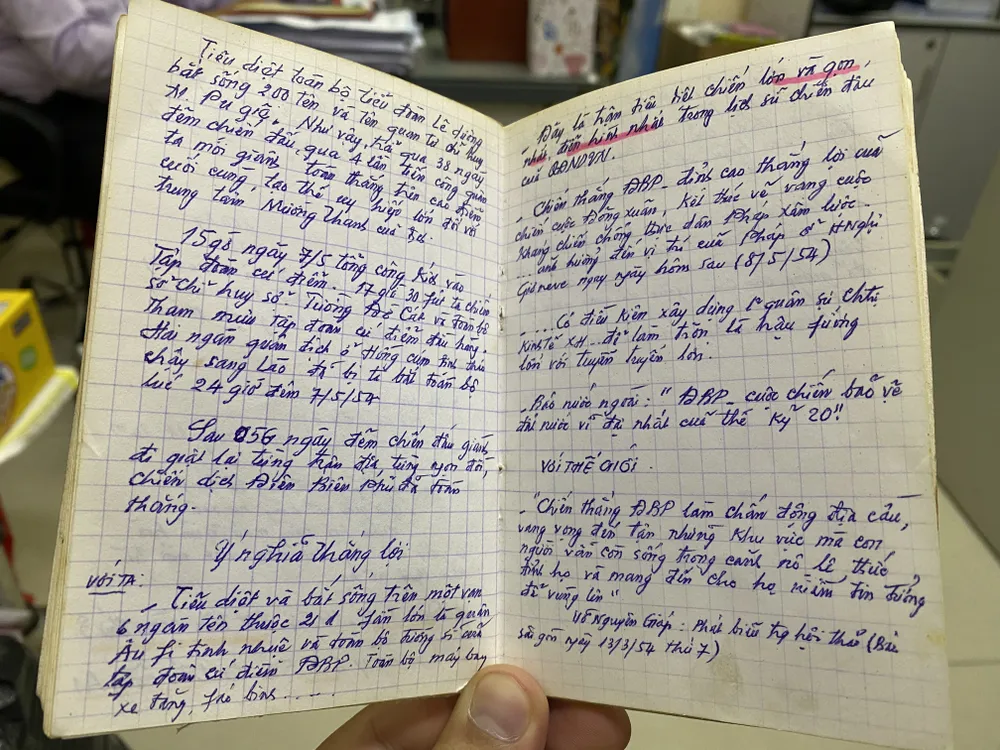 Tiêu diệt toàn bộ tiểu đoàn lê dương
bắt sống 200 tên và tên quan tư chỉ huy
M. Pu giê. Như vậy, trải qua 38 ngày
đêm chiến đấu, qua 4 lần tiến công quân
ta mới giành toàn thắng trên cao điểm
cuối cùng, tạo thế uy hiếp lớn đối với
trung tâm Mường Thanh của địch.
15 giờ ngày 7/5 tổng công kích vào
Tập đoàn cứ điểm. 17 giờ 30 fut ta chiếm
sở chỉ huy sở Tướng Đờ Cát và toàn bộ
Tham mưu tập đoàn cứ điểm đầu hàng.
Hai ngàn quân địch ở Hồng cúm tính tháo
chạy sang Lào đã bị ta bắt toàn bộ
lúc 24 giờ đêm 7/5/54
Sau 056 ngày đêm chiến đấu giành
đi giật lại từng trận địa, từng ngọn đồi,
chiến dịch Điện Biên Phủ đã toàn
thắng.
Ý nghĩa thắng lợi
VỚI TA:
_ Tiêu diệt và bắt sống trên một vạn
6 ngàn tên thuộc 21 d fần lớn là quân
Âu fi tinh nhuệ và toàn bộ tướng sĩ của
tập đoàn cứ điểm ĐBP. Toàn bộ máy bay
xe tăng, fáo binh.....
- Đây là trận tiêu diệt chiến lớn và gọn
nhất, điển hình nhất trong lịch sử chiến đấu
của QĐNDVN.
- Chiến thắng ĐBP_ đỉnh cao thắng lợi của
chiến cuộc Đông xuân, kết thúc vẻ vang cuộc
kháng chiến chống thực dân Pháp xâm lược.
... ảnh hưởng đến vị trí của Pháp ở HNghị
Giơneve ngay ngày hôm sau (8/5/54)
- ..... Có điều kiện xây dựng quân sự chtrị
kinh tế XH... để làm tròn là hậu fương
lớn với tuyền tuyến lớn.
_ Báo nước ngoài: "ĐBP_ cuộc chiến bảo vệ
đất nước vĩ đại nhất của thế kỷ 20!"
VỚI THẾ GIỚI.
- "Chiến thắng ĐBP làm chấn động địa cầu,
vang vọng đến tận những khu vực mà con
người vẫn còn sống trong cảnh nô lệ, thức
tỉnh họ và mang đến cho họ niềm tin tưởng
để vùng lên"
Võ Nguyên Giáp: Phát biểu tại hội thảo (Báo
sài gòn ngày 13/3/54 thứ 7)